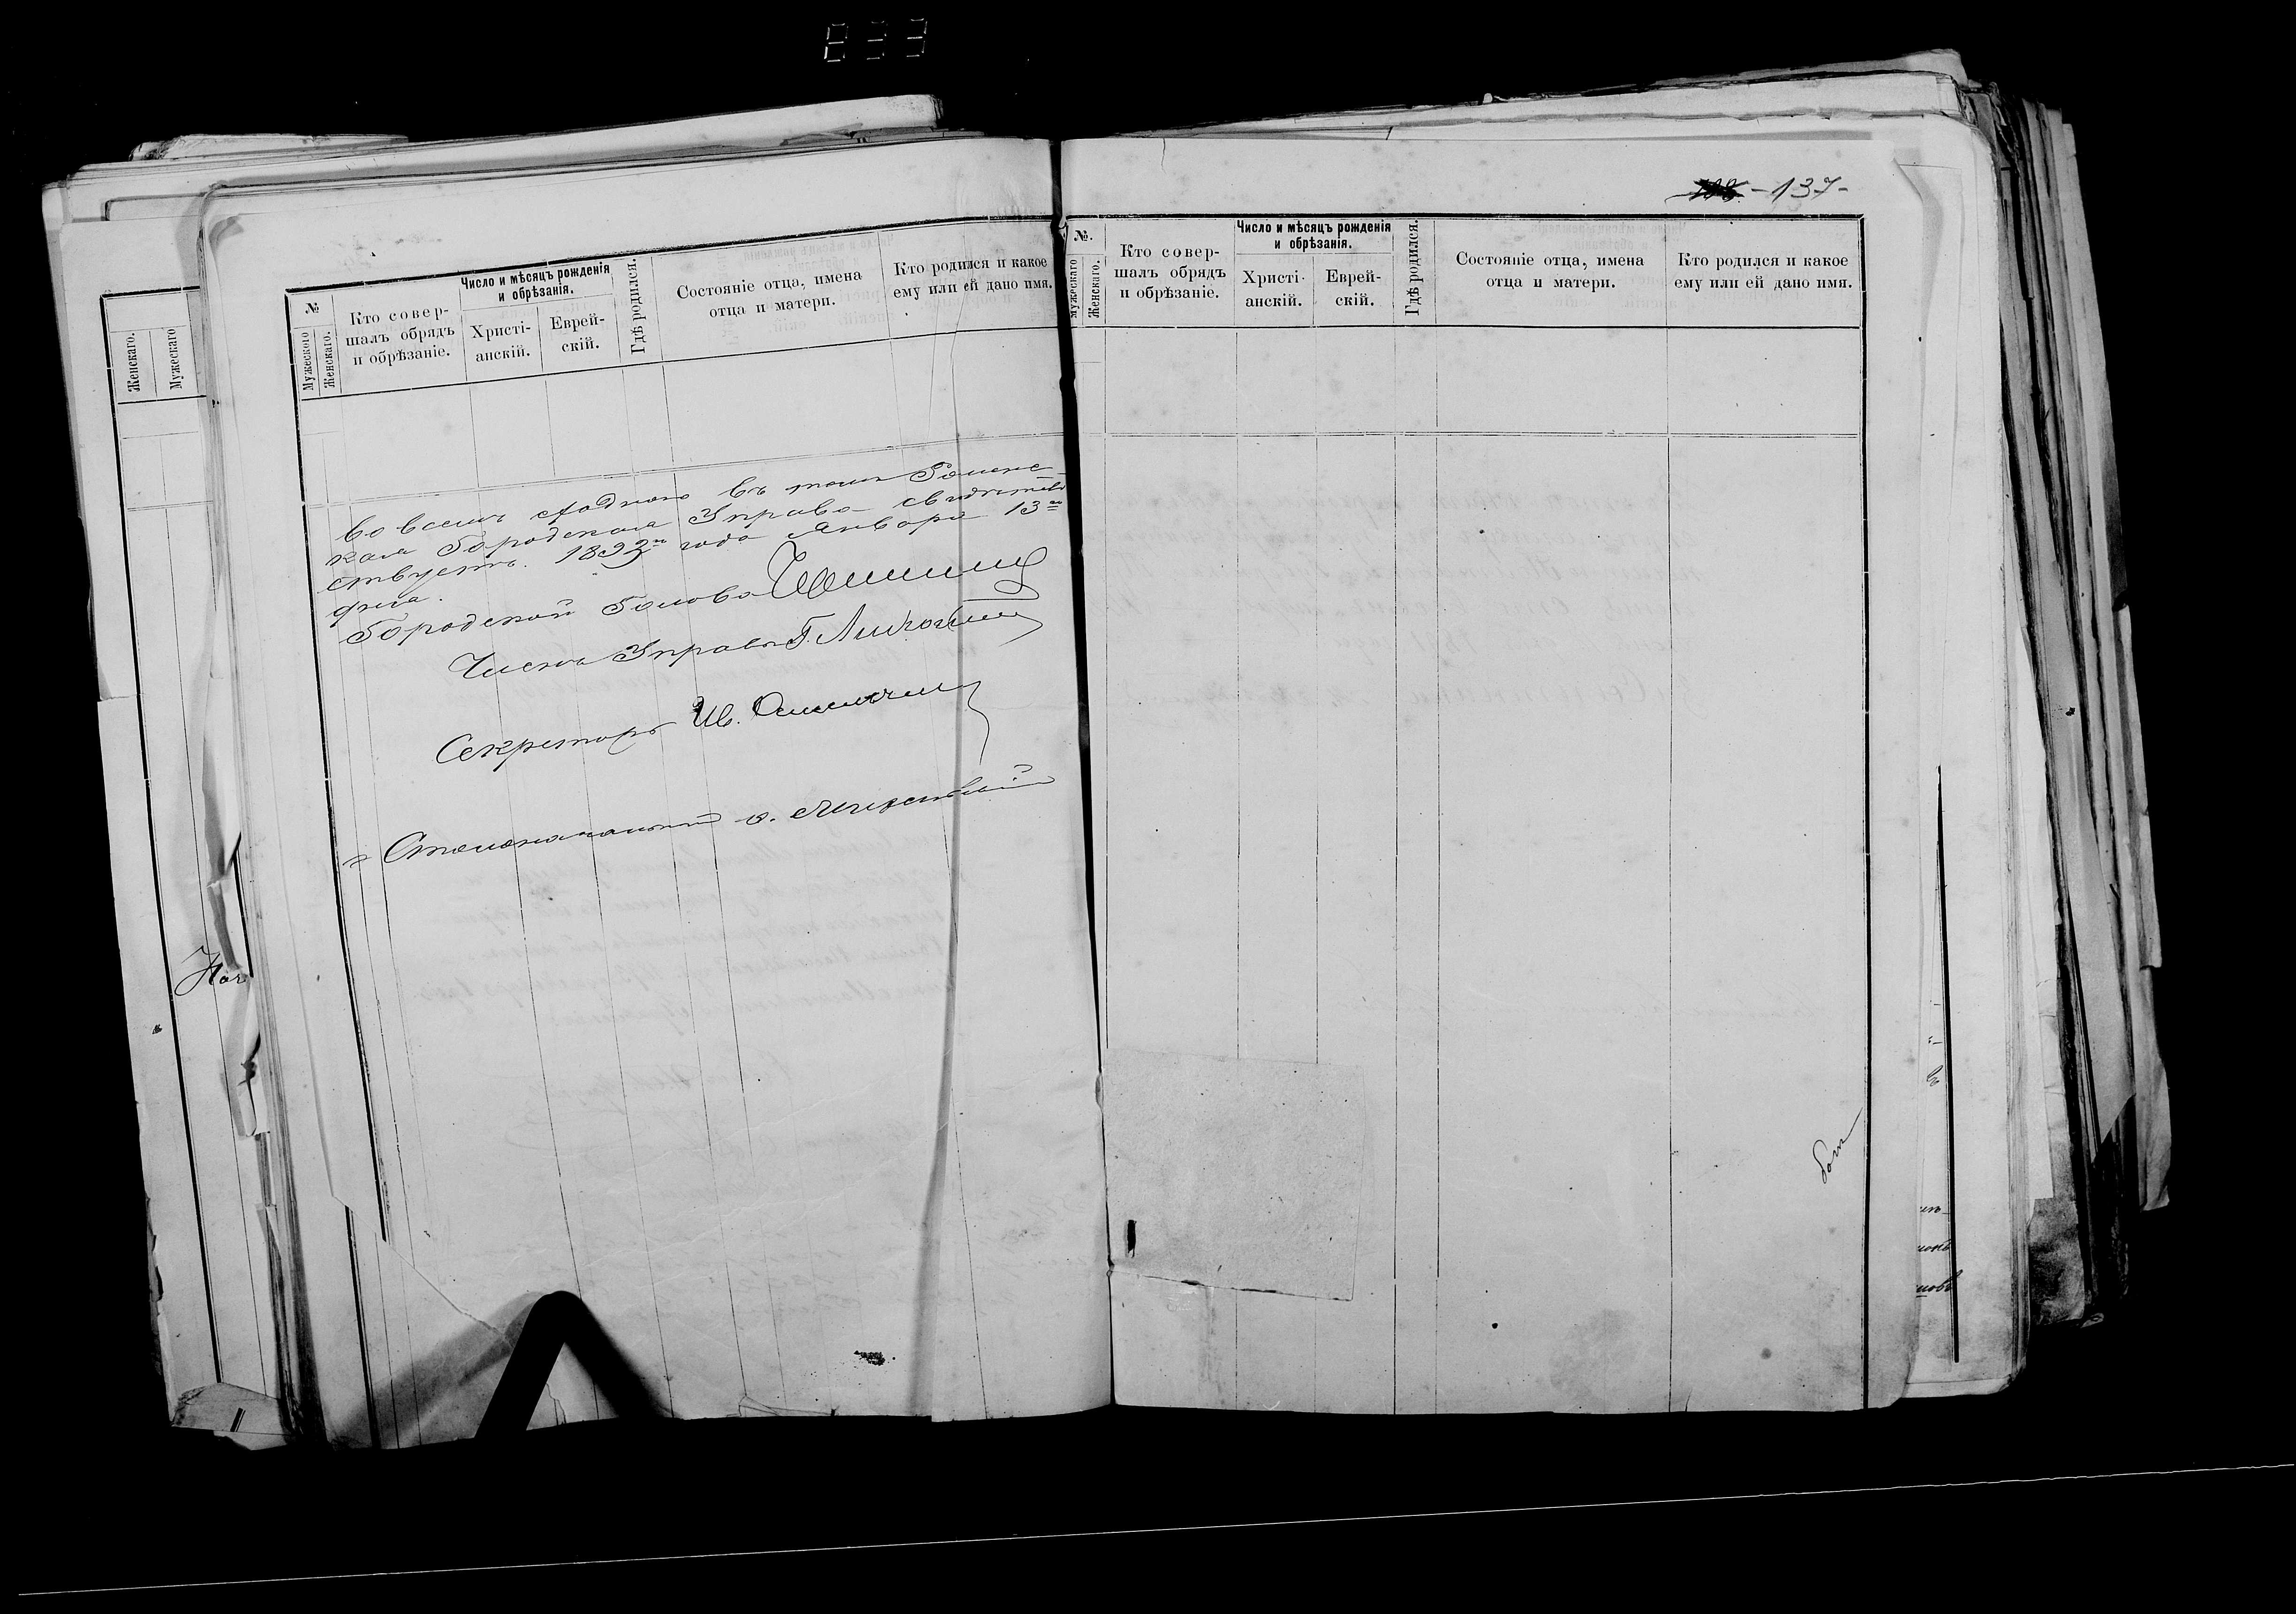 833
№
Мужескаго
Женскаго.
Кто совер-
шалъ обрядъ
и обрѣзаніе.
Число и мѣсяцъ рожденія
и обрѣзанія.
Христі-
анскій.
Еврей-
скій.
Гдѣ родился.
Состояніе отца, имена
отца и матери.
Кто родился и какое
ему или ей дано имя.
Женскаго.
Мужескаго
во всемъ сходно въ томъ Роменс-
кая Городская Управа свидѣтель
ствуетъ. 1893 года Января 13
дня.
Городской Голова
Членъ Управы
Секретарь Ив.
Столоначальникъ
- 137 -
№.
Мужескаго
Женскаго.
Кто совер-
шалъ обрядъ
и обрѣзаніе.
Число и мѣсяцъ рожденія
и обрѣзанія.
Христі-
анскій.
Еврей-
скій.
Гдѣ родился.
Состояніе отца, имена
отца и матери.
Кто родился и какое
ему или ей дано имя.